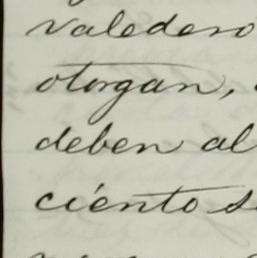 valedero
otorgan,
deben al
ciento s